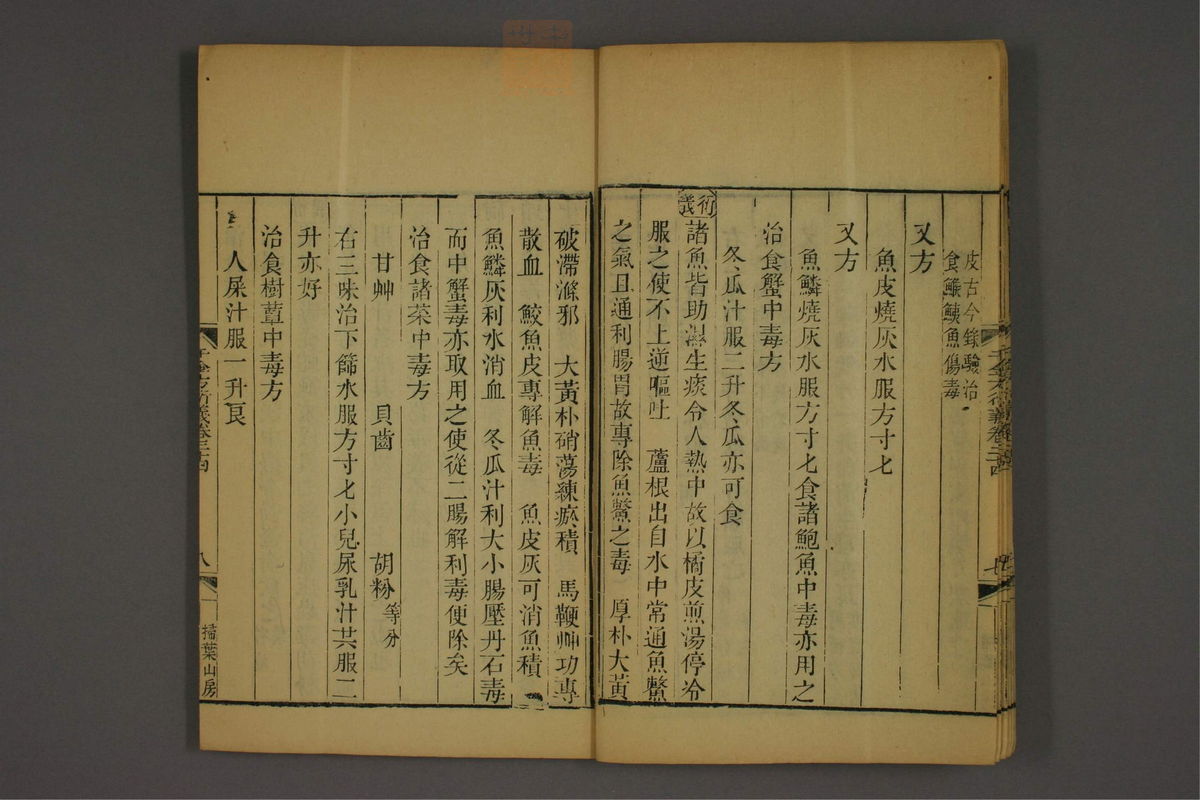 皮古今錄驗治
食鱁鮧魚傷毒
又方
魚皮燒灰水服方寸匕
又方
魚鱗燒灰水服方寸匕食諸鮑魚中毒亦用之
治食蟹中毒方
冬瓜汁服二升冬瓜亦可食
衍義
諸魚皆助濕生痰令人熱中故以橘皮煎湯停冷
服之使不上逆嘔吐　蘆根出自水中常通魚鱉
之氣且通利腸胃故專除魚鱉之毒　厚朴大黃
破滯滌邪　大黃朴硝蕩練瘀積　馬鞭艸功專
散血　鮫魚皮專解魚毒　魚皮灰可消魚積
魚鱗灰利水消血　冬瓜汁利大小腸壓丹石毒
而中蟹毒亦取用之使從二腸解利毒便除矣
治食諸菜中毒方
甘艸　貝齒　胡粉等分
右三味治下篩水服方寸匕小兒尿乳汁共服二
升亦好
治食樹蕈中毒方
人屎汁服一升良
千金方衍義卷二十四
八
掃葉山房